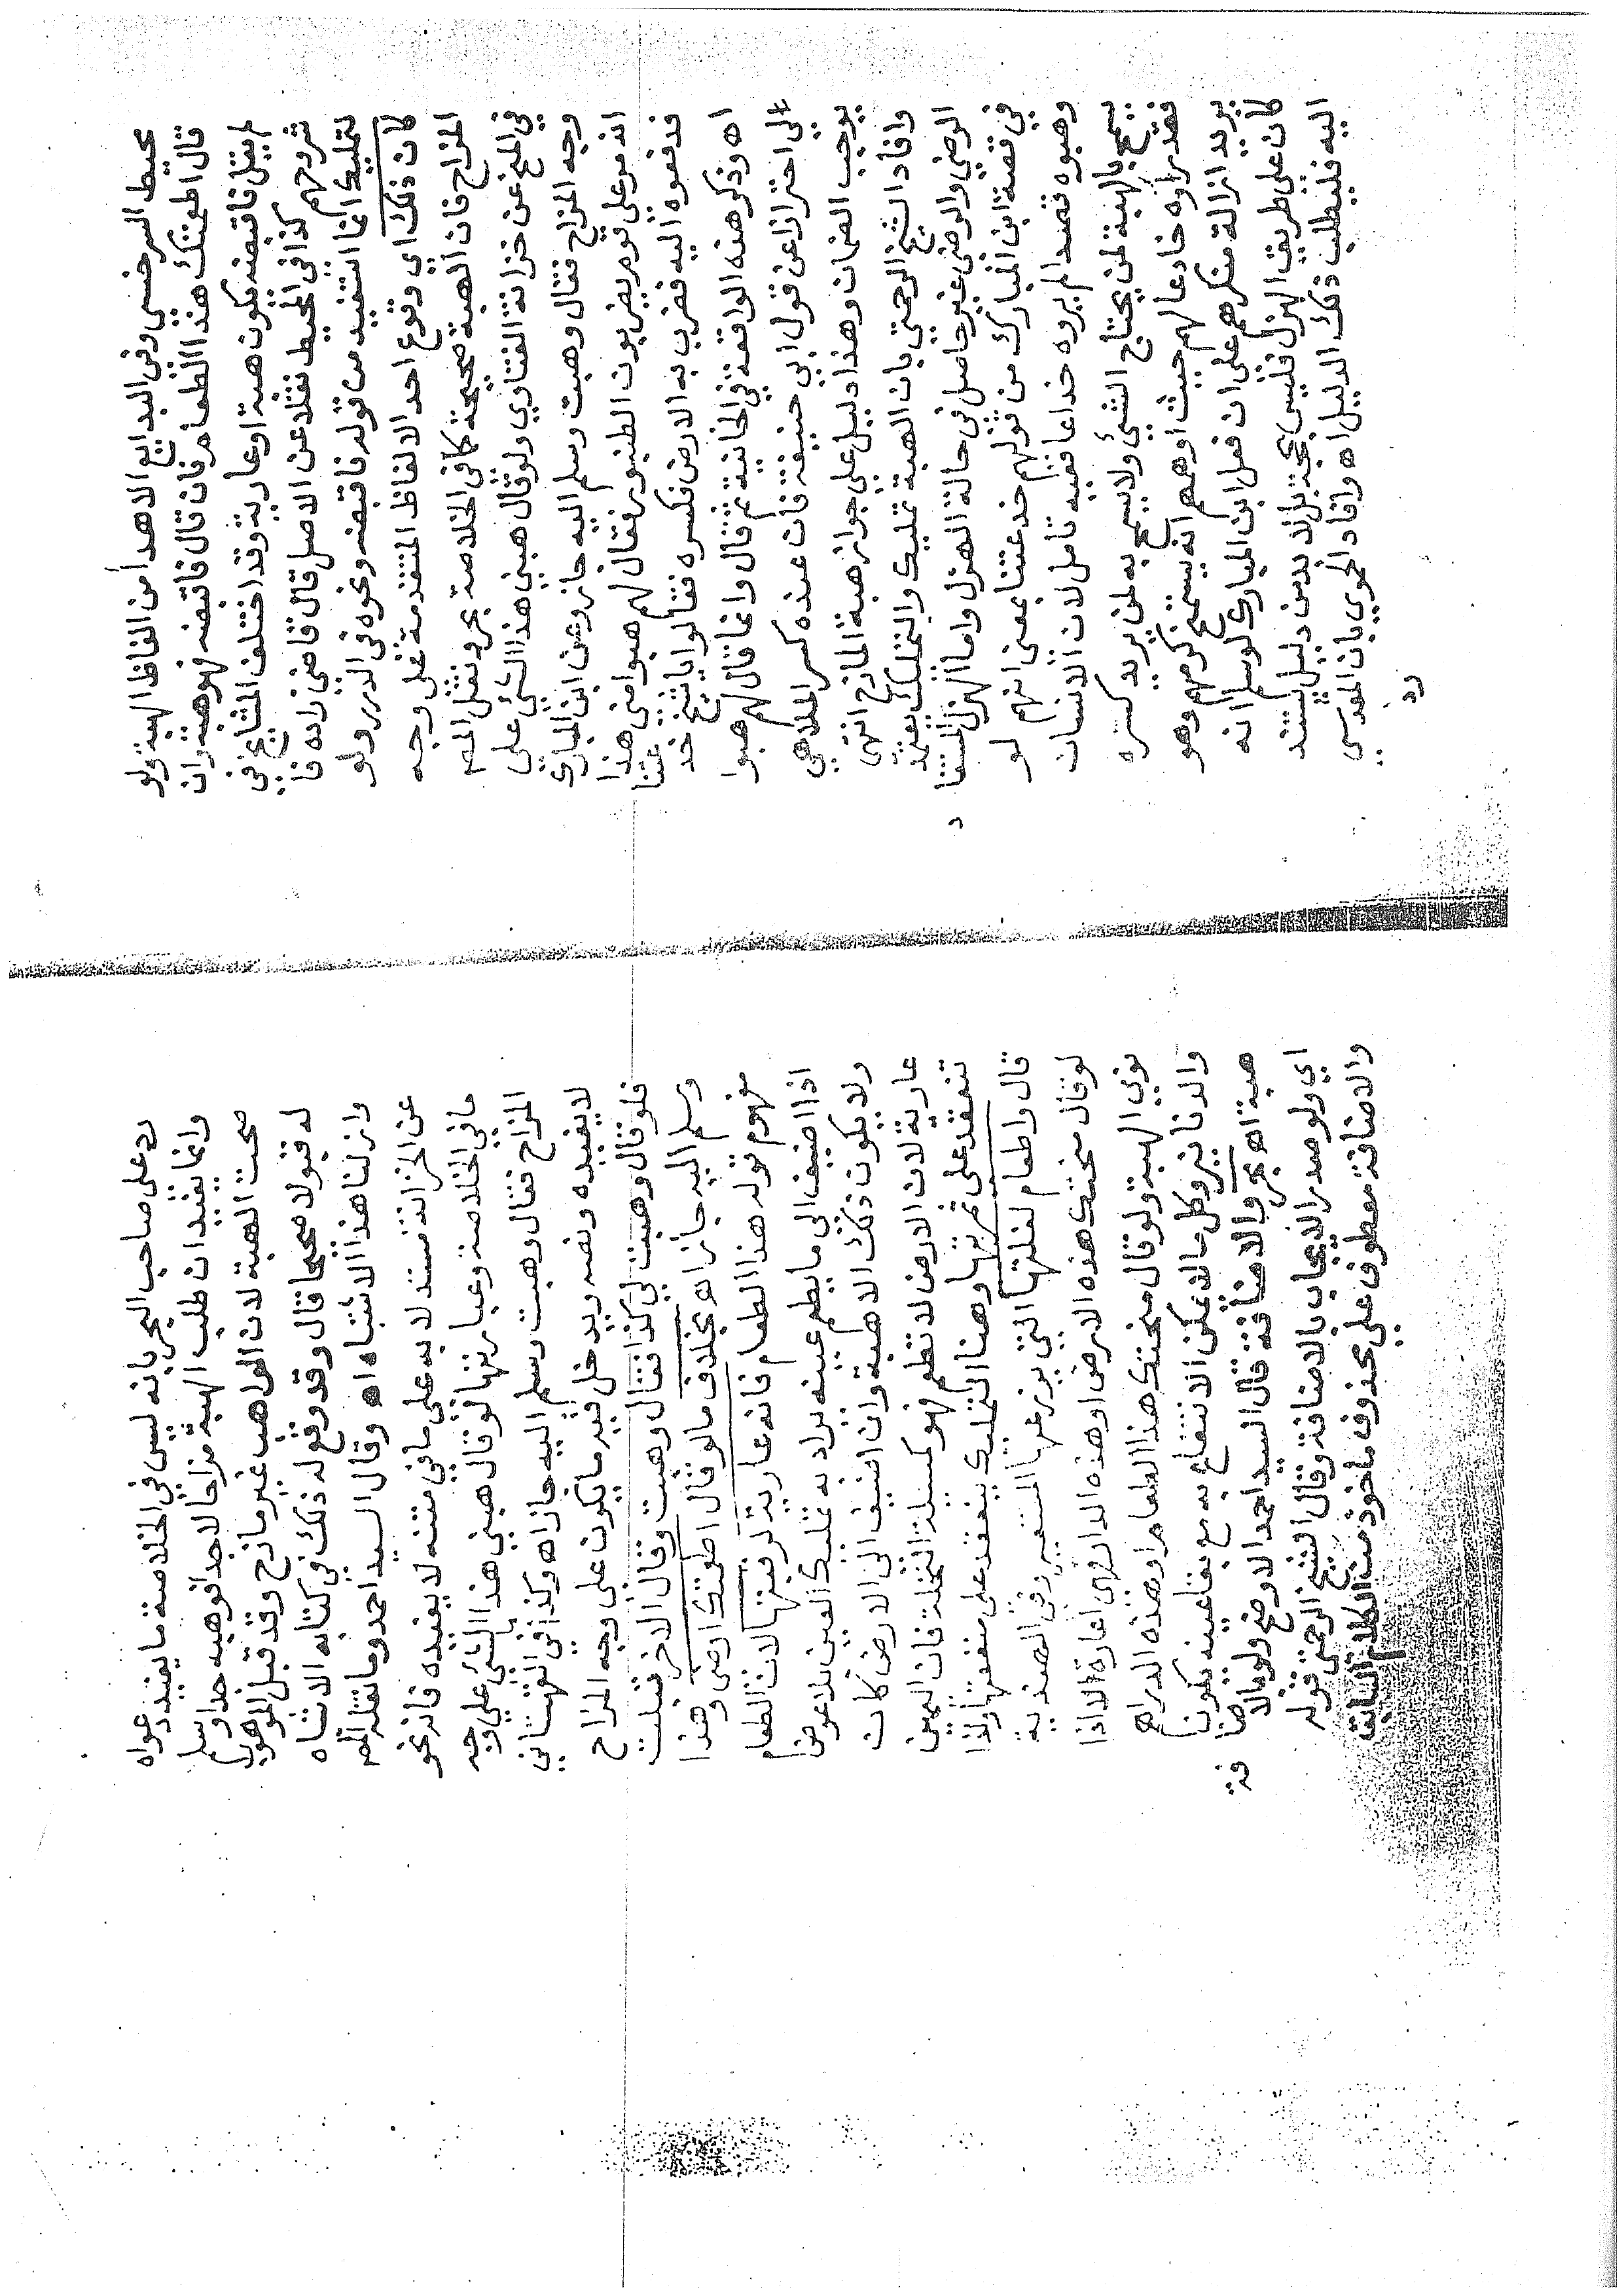 محيط السرخسي وفي البدايع الاهدأ من الفاظ الهبة ولو
قال اطعمتك هذا الطعام فان قال فاقبضه فهو هبة وان
لم يقل فاقبضه يكون هبة او عارية وقد اختلف المشايخ في
شروحهم كذا في المحيط نقلا عن الاصل قال قاضي زاده فا
لتمليك انما استفيد من قوله فاقبضه ونحوه في الدرر ولو
كان ذلك اي وقوع احد الالفاظ المتقدمة على وجه
المزاح فان الهبة صحيحة كما في الخلاصة بحر ونقل المص
في المنح عن خزانة الفتاوي ولو قال هبني هذا الشئ على
وجه المزاح فقال وهبت وسلم اليه جاز وعن ابن المبارك
انه مر على قوم يضربون الطنبور فقال لهم هبوا مني هذا
فدفعوه اليه فضرب به الارض فكسره فقالوا يا شيخ خد
عتنا
اه وذكر هذه الواقعة في الخانية ثم قال وانما قال لهم هبوا
لي احترازا عن قول ابي حنيفة فان عنده كسر الملاهي
يوجب الضمان وهذا دليل على جواز هبة المازح انتهى
وافاد الشيخ الرحمتي بان الهبة تمليك والتملك يعتمد
الرضي والرضى غير حاصل في حالة الهزل واما الهزل المستفا
د
في قصة ابن المبارك من قولهم خدعتنا بمعنى انهم لو
وهبوه قصدا لم يروه خداعا ففيه تامل لان الانسان
يسمح بالهبة لمن يحتاج الشئ ولا يسمح به لمن يريد كسره
فقد راوه خادعا لهم حيث اوهم انه يستمنح كرمهم وهو
يريد ازالة منكرهم على ان فعل ابن المبارك لو سلم انه
كان على طريق الهزل فليس بحجة بل لا بد من دليل يستند
اليه فليطلب ذلك الدليل اه وافاد الحموي بان المقدسي
رد
رد على صاحب البحر بانه ليس في الخلاصة ما يفيد دعواه
وانما يفيد ان طلب الهبة مزاحا لا جدا فوهبه جدا وسلم
صحت الهبة لان الواهب غير مازح وقد قبل الموهوب
له قبولا صحيحا قال وقد وقع له ذلك في كتابه الاشباه
وازلنا هذا الاشتباه اه وقال السيد احمد وما نقله المص
عن الخزانة مستدلا به على ما في متنه لا يفيده فانه نحو
ما في الخلاصة وعبارتها لو قال هبني هذا الشئ على وجه
المزاح فقال وهبت وسلم اليه جاز اه وكذا في القهستاني
لا يفيده ونصه ويدخل فيه ما يكون على وجه المزاح
فلو قال وهبت لي كذا فقال وهبت وقال الاخر قبلت
وسلم اليه جاز اه بخلاف ما لو قال اطعمتك ارضي وهذا
مفهوم قوله هذا الطعام فانه عارية لرقبتها لان الطعام
اذا اضيف الى ما يطعم عينه يراد به تمليك العين بلا عوض
ولا يكون ذلك الا هبة وان اضيف الى الارض كان
عارية لان الارض لا تطعم فهو كمسيلة النخلة فان اليمين
تنعقد على ثمرتها وهنا التمليك ينعقد على منفعتها ولذا
قال واطعام لغلتها التي يزرعها المستعير وفي الصندية
لو قال منحتك هذه الارض او هذه الدار فهي اعارة الا اذا
نوي الهبة ولو قال منحتك هذا الطعام او هذه الدراهم
والدنانير وكل مالا يمكن الانتفاع به مع بقا عينه يكون
هبة اه بحر والاضافة قال السيد احمد الاوضح ولو بالاضا
فة
اي ولو صدر الايجاب بالاضافة وقال الشيخ الرحمتي قوله
والاضافة معطوف على محذوف ماخوذ من الكلام السابق